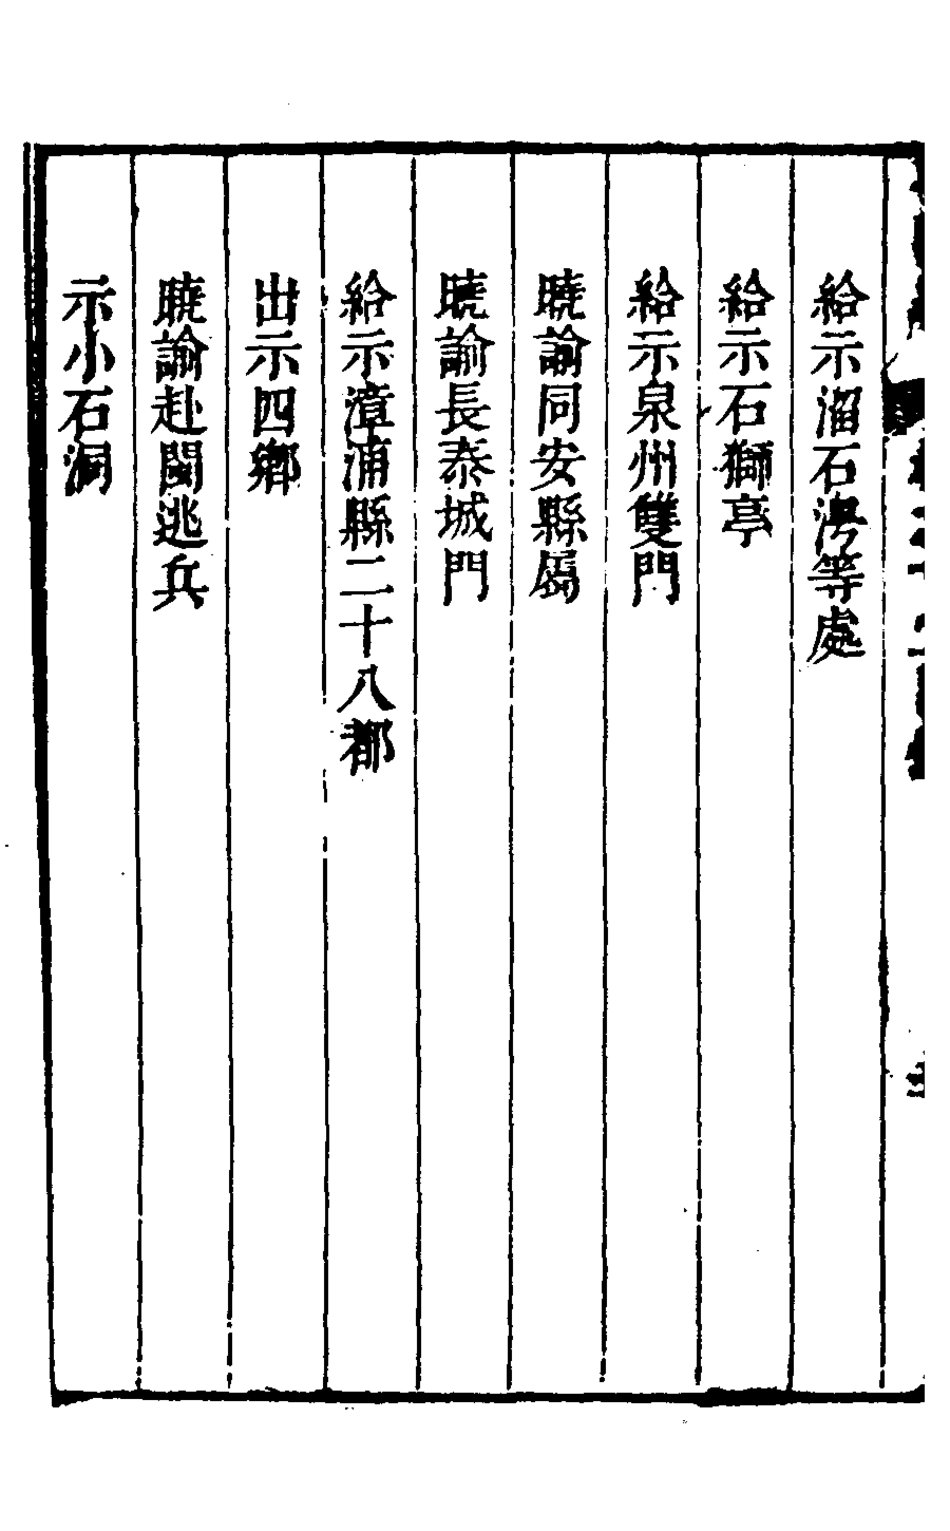 給示溜石灣等處
給示石獅亭
給示泉州雙門
曉諭同安縣屬
曉諭長泰城門
給示漳浦縣二十八都
出示四鄉
曉諭赴閩逃兵
示小石洞